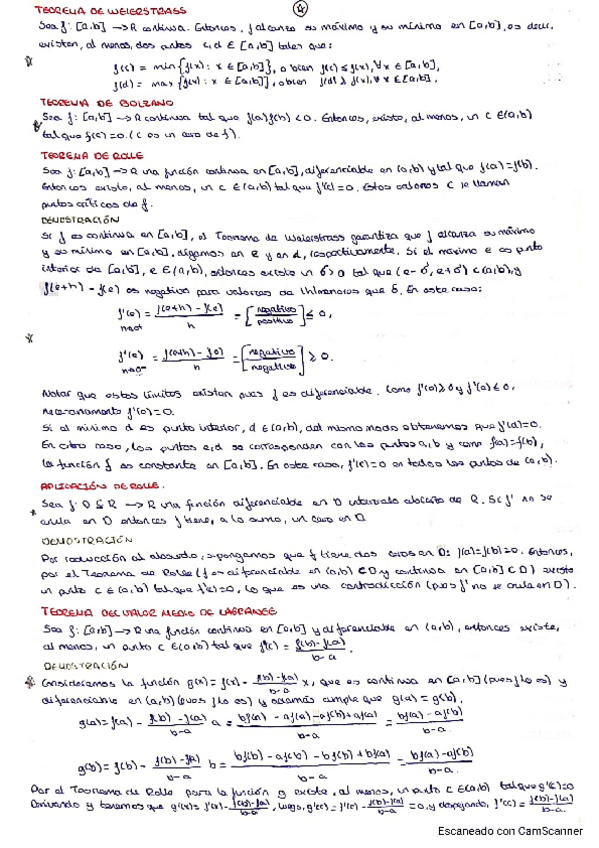 TEOREMA DE WEIERSTRASS
Sea f: [a,b] → R continua. Entonces, f alcanza su máximo y su mínimo en [a,b], es decir,
existen, al menos, dos puntos c, d ∈ [a,b] tales que:
f(c) = min{f(x): x ∈ [a,b]}, o bien f(c) ≤ f(x), ∀x ∈ [a,b],
f(d) = max{f(x): x ∈ [a,b]}, o bien f(d) ≥ f(x), ∀x ∈ [a,b].
TEOREMA DE BOLZANO
Sea f: [a,b] → R continua tal que f(a)f(b) < 0. Entonces, existe, al menos, un c ∈ (a,b)
tal que f(c) = 0. (c es un cero de f).
TEOREMA DE ROLLE
Sea f: [a,b] → R una función continua en [a,b], diferenciable en (a,b) y tal que f(a) = f(b).
Entonces existe, al menos, un c ∈ (a,b) tal que f'(c) = 0. Estos valores c se llaman
puntos críticos de f.
DEMOSTRACIÓN
Si f es continua en [a,b], el Teorema de Weierstrass garantiza que f alcanza su máximo
y su mínimo en [a,b], digamos en e y en d, respectivamente. Si el máximo e es punto
interior de [a,b], e ∈ (a,b), entonces existe un δ > 0 tal que (e-δ, e+δ) ⊂ (a,b), y
f(e+h) - f(e) es negativo para valores de h menores que δ. En este caso:
f'(e) = f(e+h) - f(e) / h = [negativo / positivo] ≤ 0,
h→0⁺
f'(e) = f(e+h) - f(e) / h = [negativo / negativo] ≥ 0.
h→0⁻
Notar que estos límites existen pues f es diferenciable. Como f'(e) ≥ 0 y f'(e) ≤ 0,
necesariamente f'(e) = 0.
Si el mínimo d es punto interior, d ∈ (a,b), del mismo modo obtenemos que f'(d) = 0.
En otro caso, los puntos e, d se corresponden con los puntos a, b y como f(a) = f(b),
la función f es constante en [a,b]. En este caso, f'(c) = 0 en todos los puntos de (a,b).
APLICACIÓN DE ROLLE.
Sea f: D ⊆ R → R una función diferenciable en D intervalo abierto de R. Si f' no se
anula en D entonces f tiene, a lo sumo, un cero en D
DEMOSTRACIÓN
Por reducción al absurdo, supongamos que f tiene dos ceros en D: f(a) = f(b) = 0. Entonces,
por el Teorema de Rolle (f es diferenciable en (a,b) ⊂ D y continua en [a,b] ⊂ D) existe
un punto c ∈ (a,b) tal que f'(c) = 0, lo que es una contradicción (pues f' no se anula en D).
TEOREMA DEL VALOR MEDIO DE LAGRANGE
Sea f: [a,b] → R una función continua en [a,b] y diferenciable en (a,b), entonces existe,
al menos, un punto c ∈ (a,b) tal que f'(c) = f(b) - f(a) / b-a.
DEMOSTRACIÓN
Consideramos la función g(x) = f(x) - f(b) - f(a) / b-a x, que es continua en [a,b] (pues f lo es) y
diferenciable en (a,b) (pues f lo es) y además cumple que g(a) = g(b),
g(a) = f(a) - f(b) - f(a) / b-a a = bf(a) - af(a) - af(b) + af(a) / b-a = bf(a) - af(b) / b-a
g(b) = f(b) - f(b) - f(a) / b-a b = bf(b) - af(b) - bf(b) + bf(a) / b-a = bf(a) - af(b) / b-a.
Por el Teorema de Rolle para la función g existe, al menos, un punto c ∈ (a,b) tal que g'(c) = 0
Derivando g tenemos que g'(x) = f'(x) - f(b) - f(a) / b-a, luego, g'(c) = f'(c) - f(b) - f(a) / b-a = 0, y despejando, f'(c) = f(b) - f(a) / b-a.
Escaneado con CamScanner